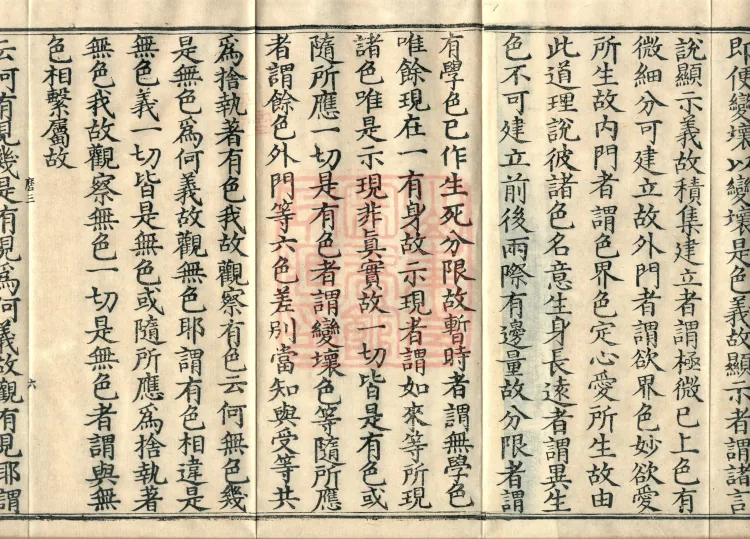 即便變壞以變壞是色義故顯示者謂諸言
說顯示義故積集建立者謂極微已上色有
微細分可建立故外門者謂欲界色妙欲愛
所生故內門者謂色界色定心愛所生故由
此道理說彼諸色名意生身長遠者謂異生
色不可建立前後兩際有邊量故分限者謂
有學色已作生死分限故暫時者謂無學色
唯餘現在一有身故示現者謂如來等所現
諸色唯是示現非真實故一切皆是有色或
隨所應一切是有色者謂變壞色等隨所應
者謂餘色外門等六色差別當知與受等共
為捨執著有色我故觀察有色云何無色幾
是無色為何義故觀無色耶謂有色相違是
無色義一切皆是無色或隨所應為捨執著
無色我故觀察無色一切是無色者謂與無
色相繫屬故
云何有見幾是有見為何義故觀有見耶謂
六